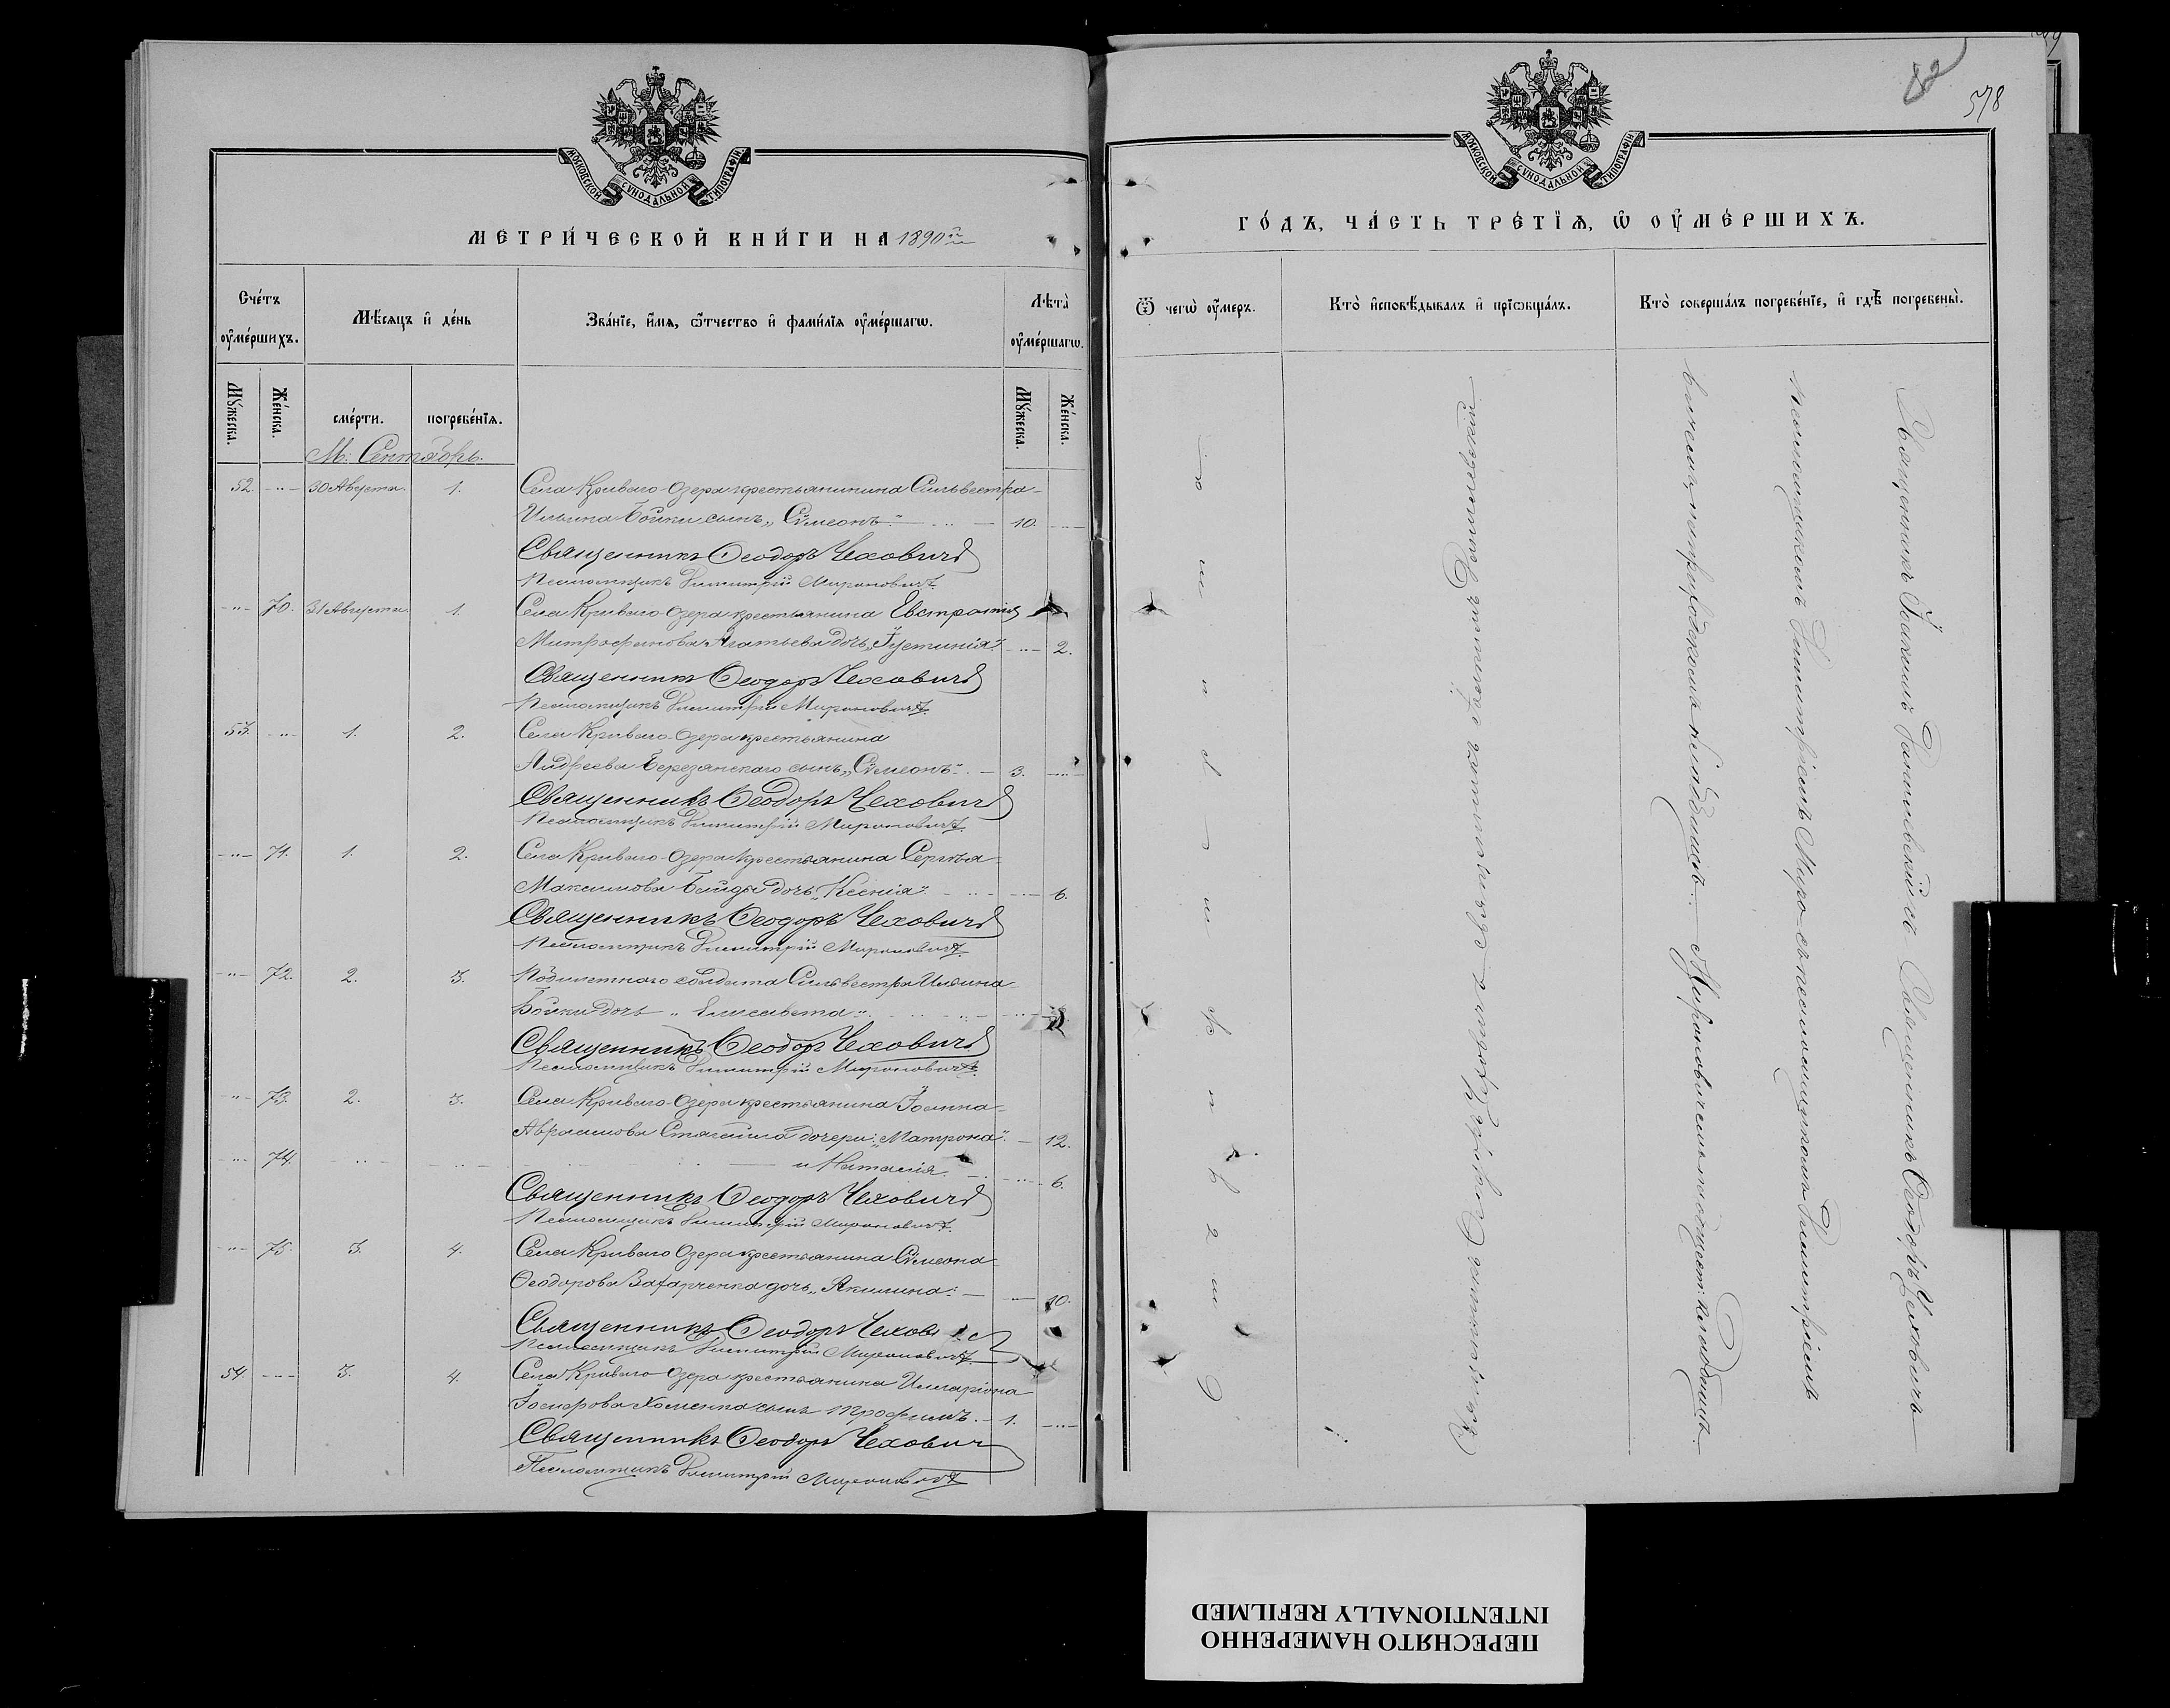 МОСКОВСКОЙ СУНОДАЛЬНОЙ ТИПОГРАФІИ
МЕТРИ́ЧЕСКОЙ КНИ́ГИ НА 1890й
Сче́тъ оу҆ме́ршихъ.
Мѣ́сяцъ и҆ де́нь
Зва́нїе, и҆́мѧ, ѻ҆́тчество и҆ фами́лїѧ оу҆ме́ршагѡ.
Лѣта̀ оу҆ме́ршагѡ.
Мꙋ́жеска.
Же́нска.
сме́рти.
погребе́нїѧ.
Мꙋ́жеска.
Же́нска.
М. Сентябрь.
52. -"- 30 Августа. 1. Села Криваго-Озера крестьянина Сильвестра
Ильина Бойки сынъ „Сѵмеонъ". 10. -"-
Священникъ Ѳеодоръ Чеховичъ
Псаломщикъ Димитрій Мироновичъ
-"- 70. 31 Августа. 1. Села Криваго-Озера крестьянина Евстратія
Митрофанова Агатьева дочь „Іустинія". -"- 2.
Священникъ Ѳеодоръ Чеховичъ
Псаломщикъ Димитрій Мироновичъ
53. -"- 1. 2. Села Криваго-Озера крестьянина
Андреева Березанскаго сынъ „Сѵмеонъ". 3. -"-
Священникъ Ѳеодоръ Чеховичъ
Псаломщикъ Димитрій Мироновичъ
-"- 71. 1. 2. Села Криваго-Озера крестьянина Сергѣя
Максимова Байды дочь „Ксенія". -"- 6.
Священникъ Ѳеодоръ Чеховичъ
Псаломщикъ Димитрій Мироновичъ
-"- 72. 2. 3. солдата Сильвестра Ильина
Бойки дочь „Елисавета".
Священникъ Ѳеодоръ Чеховичъ
Псаломщикъ Димитрій Мироновичъ
-"- 73. 2. 3. Села Криваго-Озера крестьянина Іоанна
Авраамова дочери: „Матрона". 12.
-"- 74. -"- -"- и Наталія. -"- 6.
Священникъ Ѳеодоръ Чеховичъ
Псаломщикъ Димитрій Мироновичъ
-"- 75. 3. 4. Села Криваго Озера крестьянина Сѵмеона
Ѳеодорова Захарченка дочь „Акилина". 10.
Священникъ Ѳеодоръ Чехов
Псаломщикъ Димитрій Мироновичъ
54. -"- 3. 4. Села Криваго Озера крестьянина Илларіона
Іосифова Хоменка сынъ Трофимъ. 1. -"-
Священникъ Ѳеодоръ Чехович
Псаломщикъ Димитрій Мироновичъ
52
578
МОСКОВСКОЙ СУНОДАЛЬНОЙ ТИПОГРАФІИ
ГО́ДЪ, ЧА́СТЬ ТРЕ́ТЇѦ, Ѡ҆ ОУ҆МЕ́РШИХЪ.
Ѿ чегѡ̀ оу҆́меръ.
Кто̀ и҆сповѣ́дывалъ и҆ прїѡбща́лъ.
Кто̀ соверша́лъ погребе́нїе, и҆ гдѣ̀ погребены̀.
Отъ дифтерита
Священникъ Ѳеодоръ Чеховичъ и священникъ Іоакимъ Данилевскій
Священникъ Іоакимъ Данилевскій и Священникъ Ѳеодоръ Чеховичъ
псаломщикомъ Димитріемъ Миро- съ псаломщикомъ Димитріемъ
вичемъ, на приходскомъ кладбищѣ. Мироновичемъ на общест: кладбищѣ.
ПЕРЕСНЯТО НАМЕРЕННО
INTENTIONALLY REFILMED